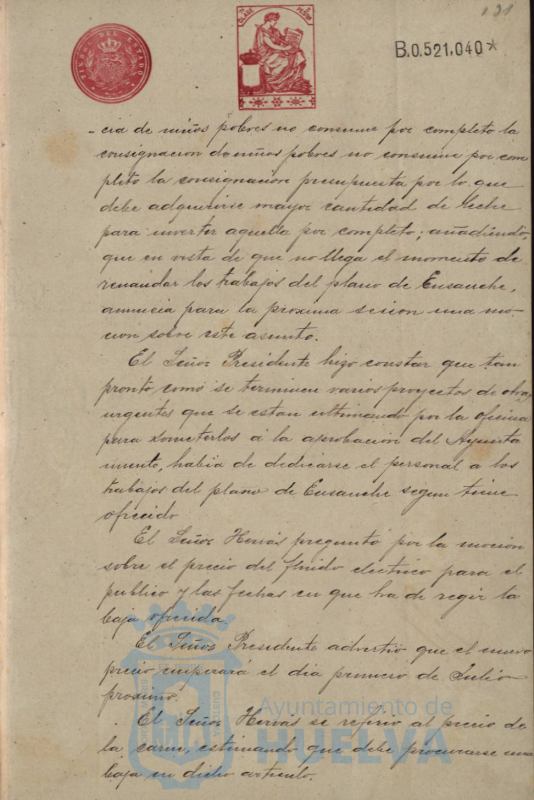 191
7ª CLASE 1 PESETA
TIMBRE DEL ESTADO
B.0.521,040*
cia de niños pobres no consume por completo la
consignacion de niños pobres no consume por com
pleto la consignacion presupuesta por lo que
debe adquirirse mayor cantidad de leche
para invertir aquella por completo; añadiendo,
que en vista de que no llega el momento de
reanudar los trabajos del plano de Ensanche,
anuncia para la proxima sesion una mo-
cion sobre este asunto.
El Señor Presidente hizo constar que tan
pronto como se terminen varios proyectos de obras
urgentes que se estan ultimando por la oficina
para someterlos á la aprobacion del Ayunta
miento, habia de dedicarse el personal a los
trabajos del plano de Ensanche segun tiene
ofrecido
El Señor Hervás preguntó por la mocion
sobre el precio del fluido electrico para el
publico y las fechas en que ha de regir la
baja ofrecida,
El Señor Presidente advertió que el nuevo
precio empezará el dia primero de Julio
proximo.
El Señor Hervás se refirió al precio de
la carne, estimando que debe procurarse una
baja en dicho articulo.
Ayuntamiento de
HUELVA